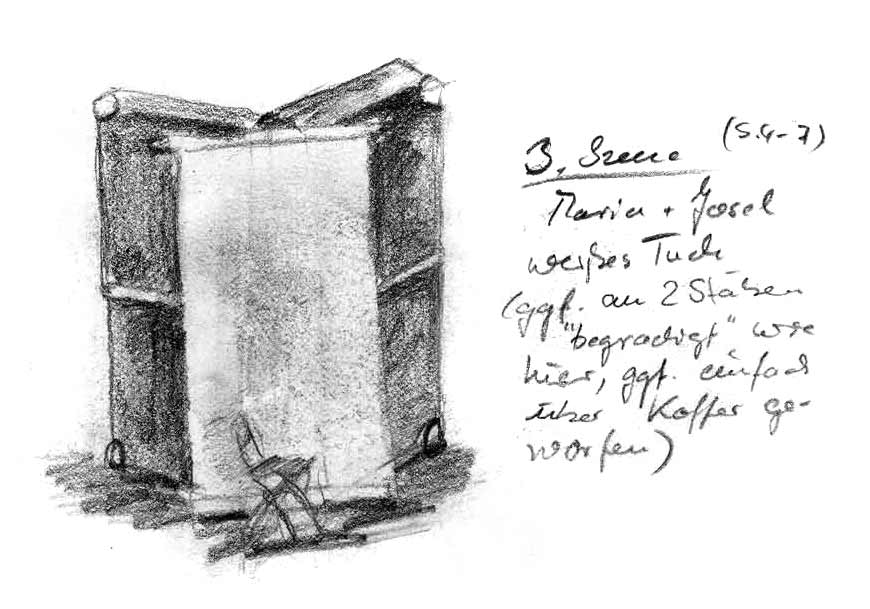 3. Szene (S. 4-7)
Maria + Josef
weißes Tuch
(ggf. an 2 Stäben
"begradigt" wie
hier, ggf. einfach
über Koffer ge-
worfen)